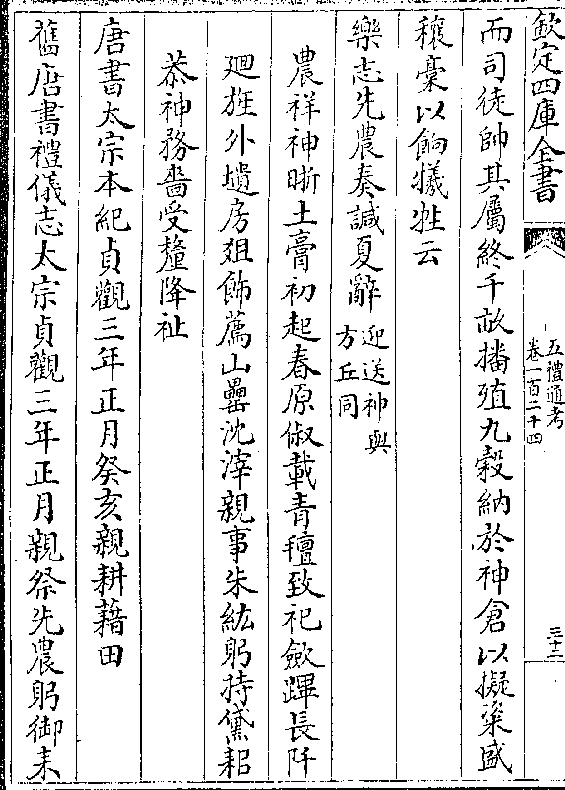 欽定四庫全書
五禮通考
卷一百二十四
三十二
而司徒帥其屬終千畝播殖九穀納於神倉以擬粢盛
穰稾以餉犧牲云
樂志先農奏諴夏辭迎送神與
方丘同
農祥神晣土膏初起春原俶載青壇致祀斂蹕長阡
廻旌外壝房俎飾薦山罍沈滓親事朱紘躬持黛耜
恭神務嗇受釐降祉
唐書太宗本紀貞觀三年正月癸亥親耕藉田
舊唐書禮儀志太宗貞觀三年正月親祭先農躬御耒